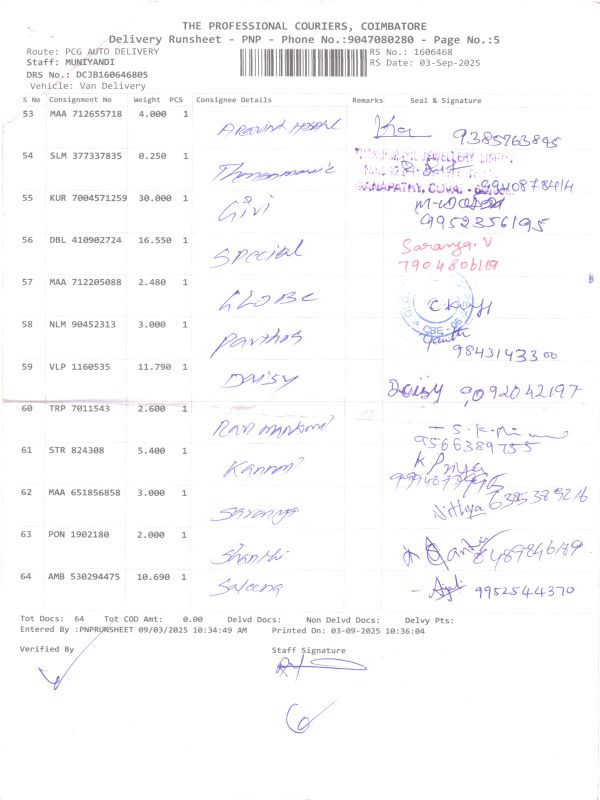 THE PROFESSIONAL COURIERS, COIMBATORE
Delivery Runsheet - PNP - Phone No.:9047080280 - Page No.:5
Route: PCG AUTO DELIVERY RS No.: 1606468
Staff: MUNIYANDI RS Date: 03-Sep-2025
DRS No.: DCJB160646805
Vehicle: Van Delivery
S No Consignment No Weight PCS Consignee Details Remarks Seal & Signature
53 MAA 712655718 4.000 1 Aravind Hospital 9385963895
54 SLM 377337835 0.250 1 JEWELLERY
GANAPATHY, 9940878414
55 KUR 7004571259 30.000 1 Givi
9952356195
56 DBL 410902724 16.550 1 Special Saranya.V
7904806119
57 MAA 712205088 2.480 1 GLOBE CBE
58 NLM 90452313 3.000 1 Parthas
9843143300
59 VLP 1160535 11.790 1 Daisy Daisy 9092042197
60 TRP 7011543 2.600 1
9566389755
61 STR 824308 5.400 1 Kannan K Priya
62 MAA 651856858 3.000 1 Saranya Nithya 6385389216
63 PON 1902180 2.000 1 Shanthi 8489846189
64 AMB 530294475 10.690 1 Saleena 9952544370
Tot Docs: 64 Tot COD Amt: 0.00 Delvd Docs: Non Delvd Docs: Delvy Pts:
Entered By :PNPRUNSHEET 09/03/2025 10:34:49 AM Printed On: 03-09-2025 10:36:04
Verified By Staff Signature